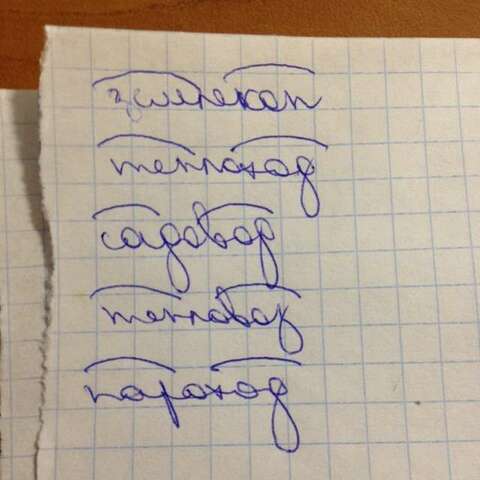 землекоп
теплоход
садовод
тепловоз
пароход